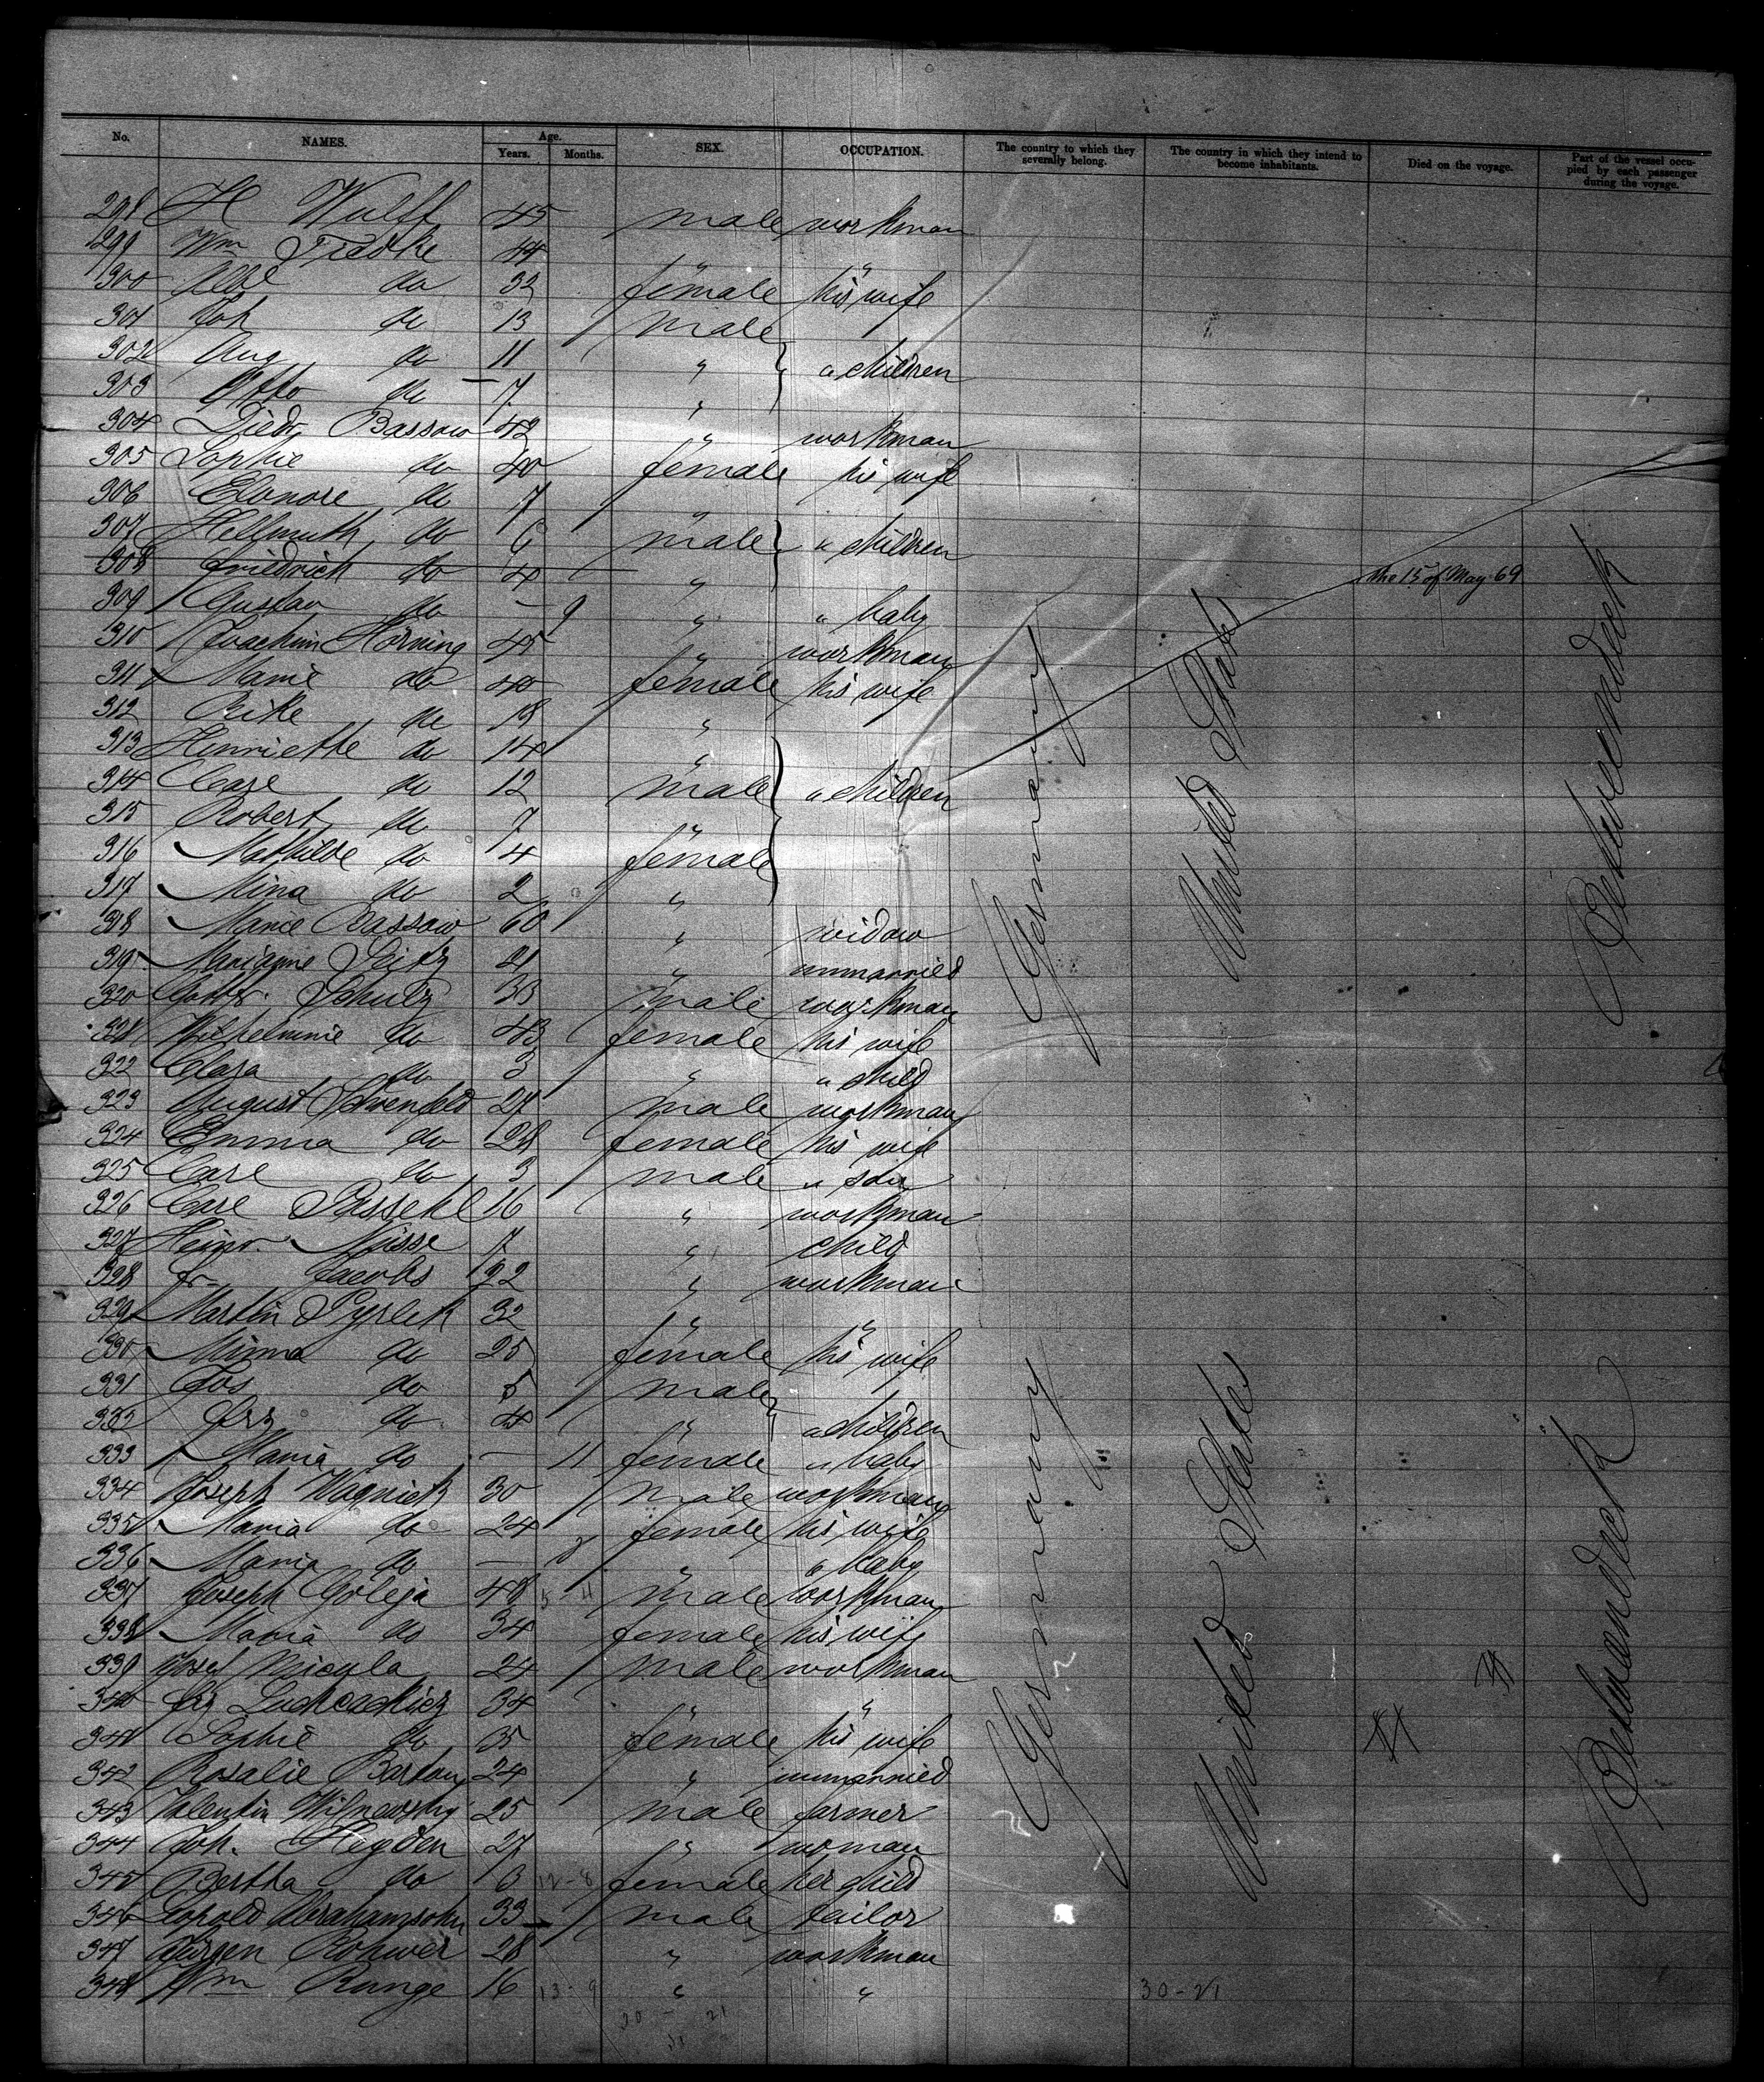 No. NAMES. Age. Years. Months. SEX. OCCUPATION. The country to which they severally belong. The country in which they intend to become inhabitants. Died on the voyage. Part of the vessel occupied by each passenger during the voyage.
298 H Wulff 45 male workman
299 Wm Tiedke 44 " "
300 do 32 female his wife
301 Joh do 13 male
302 Aug do 11 " " children
303 Otto do 7 "
304 Diedr Bassow 42 " workman
305 Sophie do 40 female his wife
306 Elonore do 7 "
307 Hellmuth do 6 male " children
308 Friedrich do 4 " the 15 of May 69
309 Gustav do – 9 " " baby
310 Joachim Horning 45 " workman
311 Marie do 40 female his wife
312 Rike do 18 "
313 Henriette do 14 "
314 Carl do 12 male " children
315 Robert do 7 "
316 Mathilde do 4 female
317 Mina do 2 "
318 Marie Bassow 60 " widow
319 Marianne Seitz 21 " unmarried
320 Gottfr. Schulz 33 male workman
321 Wilhelmine do 43 female his wife
322 Clara do 3 " " child
323 August 27 male workman
324 Emma do 28 female his wife
325 Carl do 3 male " son
326 Carl Passehl 16 " workman
327 Heinr. Nüsse 7 " child
328 Fr. Jacobs 22 " workman
329 Martin 32 " "
330 Minna do 25 female his wife
331 Jos do 5 male
332 Frz do 4 " " children
333 Maria do – 11 female " baby
334 Joseph 30 male workman
335 Maria do 24 female his wife
336 Maria do – " " baby
337 Joseph Goleja 48 male workman
338 Maria do 34 female his wife
339 Josef Micula 24 male workman
340 34 " "
341 Sophie do 35 female his wife
342 Rosalie 24 " unmarried
343 Valentin Wisnewsky 25 male farmer
344 Joh. Hegden 27 " woman
345 Bertha do 3 female her child
346 Leopold Abrahamsohn 33 male tailor
347 Jürgen Rohwer 28 " workman
348 Wm Runge 16 " "
Germany
United States
Betweendeck
Germany
United States
Betweendeck
30-21